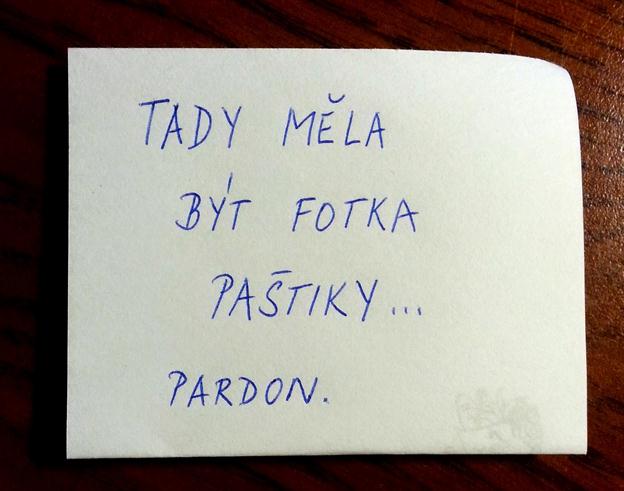 TADY MĚLA
BÝT FOTKA
PAŠTIKY...
PARDON.